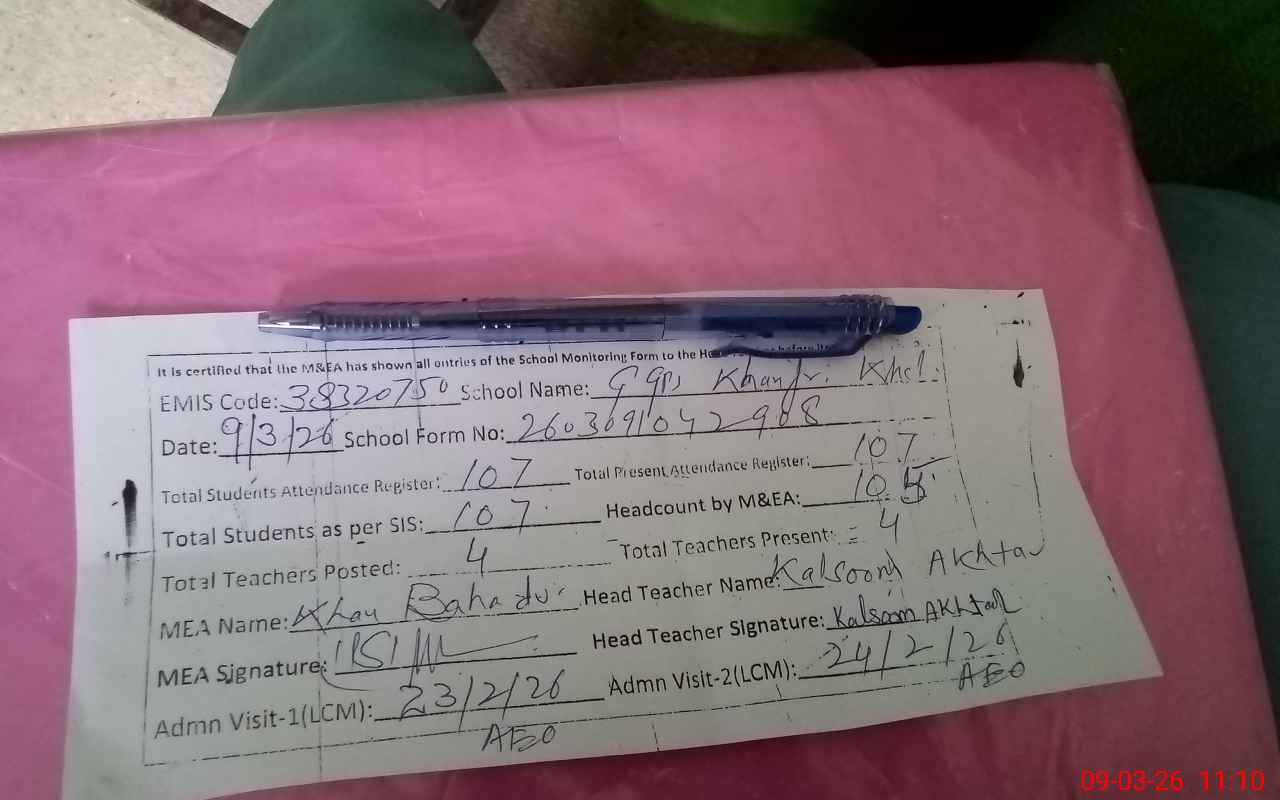 It is certified that the M&EA has shown all entries of the School Monitoring Form to the
EMIS Code: 38320750 School Name: GGPS Khanjr. Khel
Date: 9/3/26 School Form No: 2603091042908
Total Students Attendance Register: 107 Total Present Attendance Register: 107
Total Students as per SIS: 107 Headcount by M&EA: 105
Total Teachers Posted: 4 Total Teachers Present: = 4
MEA Name: Khan Bahadur Head Teacher Name: Kalsoom Akhtar
MEA Signature: Head Teacher Signature: Kalsoom Akhtar
Admn Visit-1(LCM): 23/2/26 Admn Visit-2(LCM): 24/2/26
AEO AEO
09-03-26 11:10